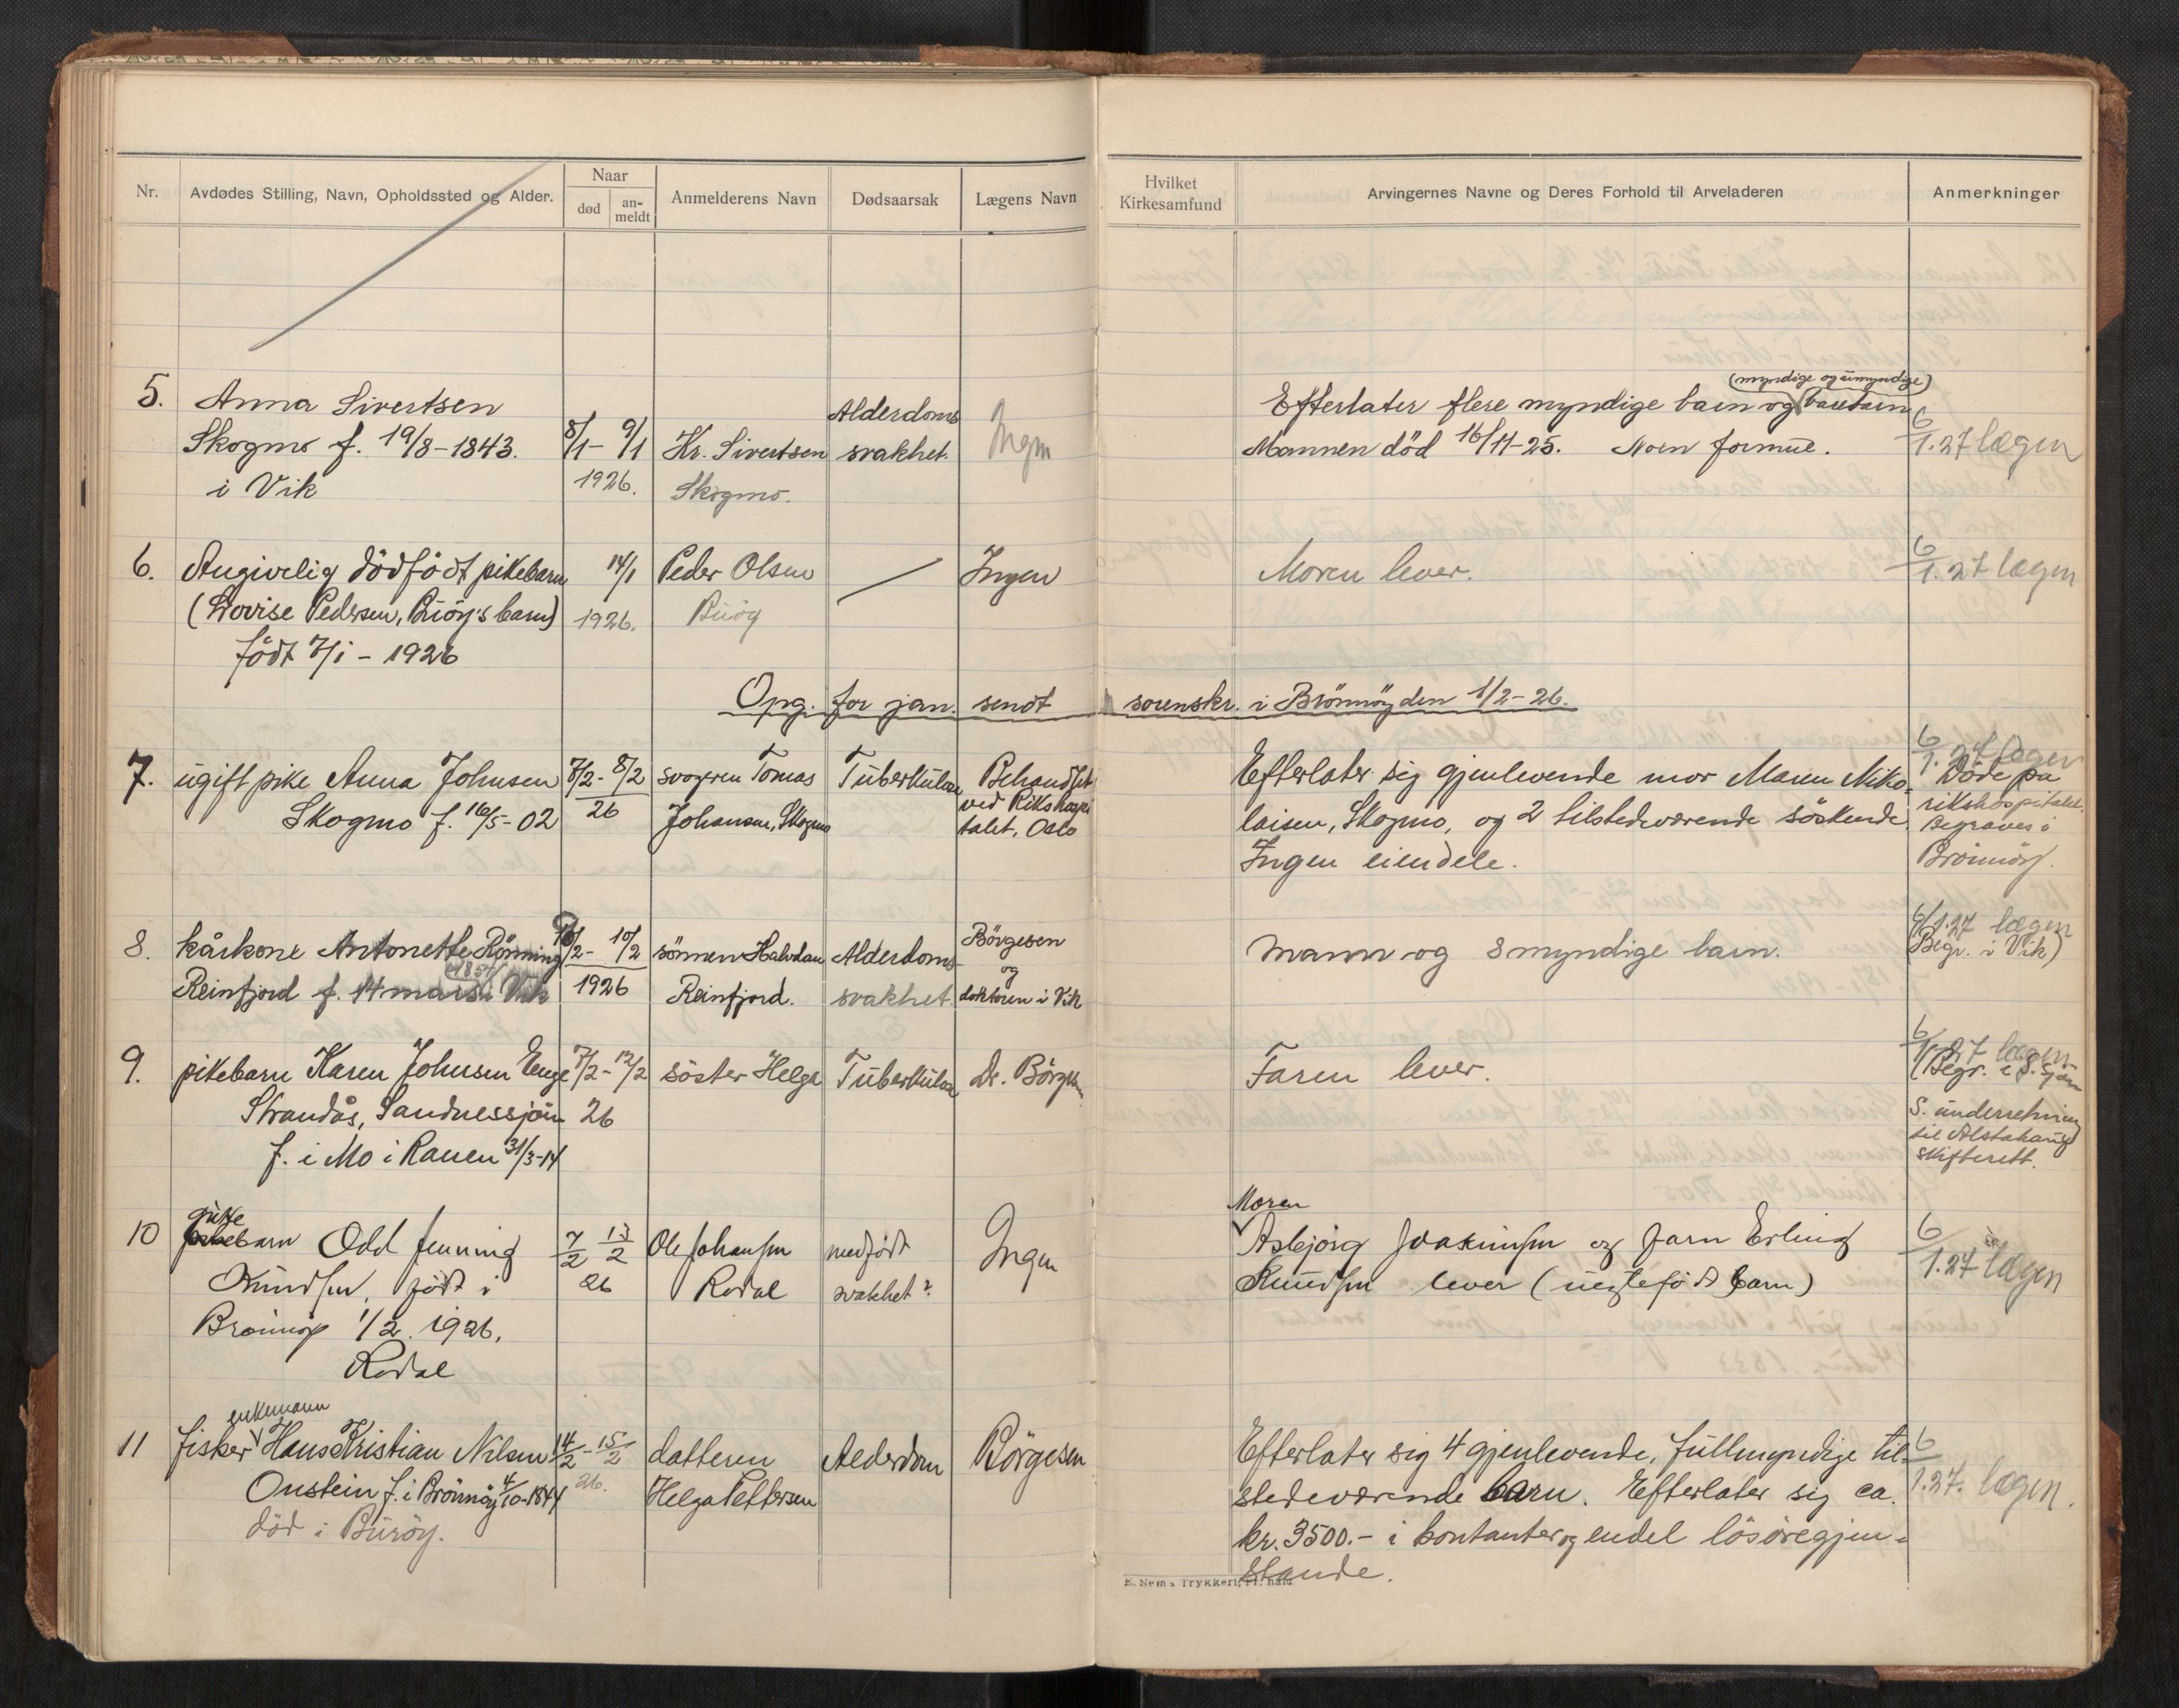 Nr.
Avdødes Stilling, Navn, Opholdssted og Alder.
Naar
død
an-
meldt
Anmelderens Navn
Dødsaarsak
Lægens Navn
Hvilket
Kirkesamfund
Arvingernes Navne og Deres Forhold til Arveladeren
Anmerkninger
5. Anna Sivertsen
Skogmo f. 19/8-1843.
i Vik
8/1- 9/1
1926.
Kr. Sivertsen
Skogmo.
Alderdoms
svakhet.
Ingen
(myndige og umyndige)
Efterlater flere myndige barn og barnebarn
Mannen död 16/11-25. Noen formue.
6
1.27 lægen
6. Angivelig dödfödt pikebarn
(Lovise Pedersen, Buöy's barn)
födt 7/1 - 1926
14/1
1926.
Peder Olsen
Buöy
Ingen
Moren lever.
6
1.27 lægen
Opg. for jan. sendt sorenskr. i Brönnöy den 1/2-26.
7. ugift pike Anna Johnsen
Skogmo f. 16/5-02
7/2- 8/2
26
svogeren Tomas
Johansen, Skogmo
Tuberkulose
Behandlet
ved Rikshospi
talet, Oslo
Efterlater sig gjenlevende mor Maren Niko-
laisen, Skogmo, og 2 tilstedeværende söskende.
Ingen eiendele.
6
1.27 lægen
Döde på
rikshospitalet.
Begraves i
Brönnöy.
8. kårkone Antonette Rönning
Reinfjord f. 14 mars 1834 i Vik
/2- 10/2
1926
sönnen Halvdan
Reinfjord.
Alderdoms-
svakhet.
Börgesen
og
doktoren i Vik
mann og 8 myndige barn.
6/1.27 lægen
Begr. i Vik)
9. pikebarn Karen Johnsen Enge
Strandås, Sandnessjöen
f. i Mo i Ranen 31/3-14
7/2-12/2
26
söster Helga
Tuberkulose
Dr. Börgesen
Faren lever.
6
1.27 lægen
(Begr. i S.sjöen
S. underretning
til Alstahaug
skifterett.
10 gutte
pikebarn Odd Jenning
Knudsen, födt i
Brönnöy 1/2. 1926.
Rodal
7/2 13/2
26
Ole Johansen
Rodal
medfödt
svakhet?
Ingen
Moren
Asbjörg Joakimsen og faren Erling
Knudsen lever (uegtefödt barn)
6
1.27 lægen
11 enkemann
fisker Hans Kristian Nilsen
Onstein f. i Brönnöy 4/10-1844
död i Buröy.
14/2-15/2
26.
datteren
Helga Pettersen
Alderdom
Börgesen
Efterlater sig 4 gjenlevende, fullmyndige til-
stedeværende barn. Efterlater sig ca.
kr. 3500.- i kontanter og endel lösöregjen-
stande.
6
1.27. lægen.